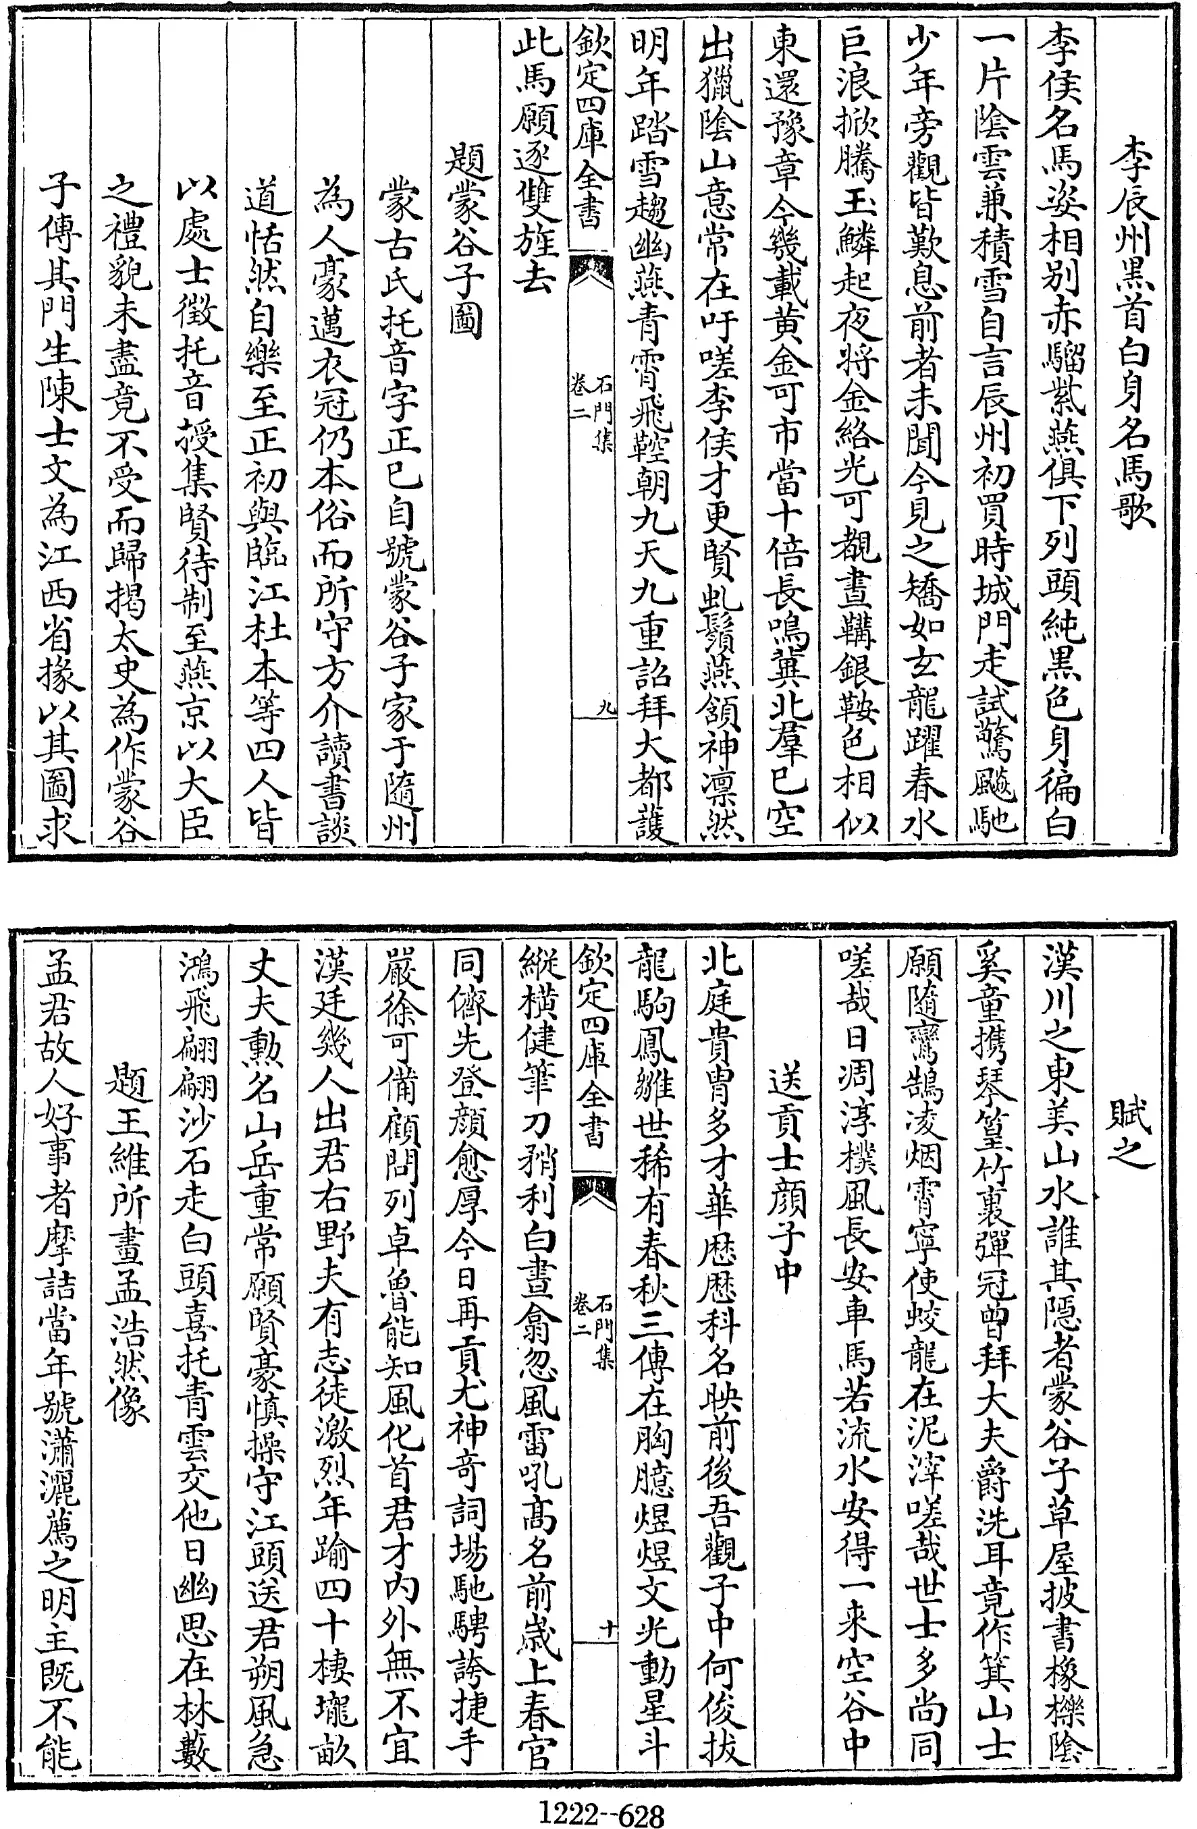 李辰州黑首白身名馬歌
李侯名馬姿相别赤騮紫燕俱下列頭純黑色身徧白
一片陰雲兼積雪自言辰州初買時城門走試驚飈馳
少年旁觀皆歎息前者未聞今見之矯如玄龍躍春水
巨浪掀騰玉鱗起夜將金絡光可覩晝韝銀鞍色相似
東還豫章今幾載黄金可市當十倍長鳴冀北羣已空
出獵陰山意常在吁嗟李侯才更賢虬鬚燕頷神凛然
明年踏雪趨幽燕青霄飛鞚朝九天九重詔拜大都護
欽定四庫全書
石門集
卷二
九
此馬願逐雙旌去
題蒙谷子圖
蒙古氏托音字正已自號蒙谷子家于隨州
為人豪邁衣冠仍本俗而所守方介讀書談
道恬然自樂至正初與臨江杜本等四人皆
以處士徵托音授集賢待制至燕京以大臣
之禮貌未盡竟不受而歸揭太史為作蒙谷
子傳其門生陳士文為江西省掾以其圖求
賦之
漢川之東美山水誰其隠者蒙谷子草屋披書橡櫟陰
奚童携琴篁竹裏彈冠曽拜大夫爵洗耳竟作箕山士
願隨鸞鵠凌烟霄寧使蛟龍在泥滓嗟哉世士多尚同
嗟哉日凋淳樸風長安車馬若流水安得一来空谷中
送貢士顔子中
北庭貴胄多才華歴歴科名映前後吾觀子中何俊拔
龍駒鳳雛世稀有春秋三傳在胸臆煜煜文光動星斗
欽定四庫全書
石門集
卷二
十
縱横健筆刀矟利白晝翕忽風雷吼髙名前歲上春官
同儕先登顔愈厚今日再貢尤神竒詞場馳騁誇捷手
嚴徐可備顧問列卓魯能知風化首君才内外無不宜
漢廷幾人出君右野夫有志徒激烈年踰四十棲壠畝
丈夫勲名山岳重常願賢豪慎操守江頭送君朔風急
鴻飛翩翩沙石走白頭喜托青雲交他日幽思在林藪
題王維所畫孟浩然像
孟君故人好事者摩詰當年號瀟灑薦之明主既不能
1222--628